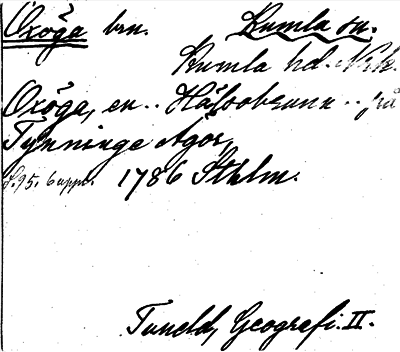 Oxöga brn. Kumla sn.
Kumla hd. Nrk.
Oxöga, en .. Hälsobrunn .. på
Tynninge Ägor,
S. 95. 6 uppl. 1786 Sthlm.
Tuneld, Geografi. II.